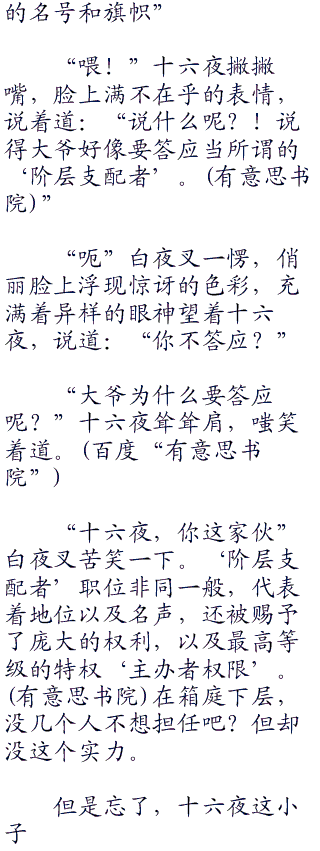 的名号和旗帜”
“喂！”十六夜撇撇
嘴，脸上满不在乎的表情，
说着道：“说什么呢？！说
得大爷好像要答应当所谓的
‘阶层支配者’。(有意思书
院)”
“呃”白夜叉一愣，俏
丽脸上浮现惊讶的色彩，充
满着异样的眼神望着十六
夜，说道：“你不答应？”
“大爷为什么要答应
呢？”十六夜耸耸肩，嗤笑
着道。(百度“有意思书
院”)
“十六夜，你这家伙”
白夜叉苦笑一下。‘阶层支
配者’职位非同一般，代表
着地位以及名声，还被赐予
了庞大的权利，以及最高等
级的特权‘主办者权限’。
(有意思书院)在箱庭下层，
没几个人不想担任吧？但却
没这个实力。
但是忘了，十六夜这小
子